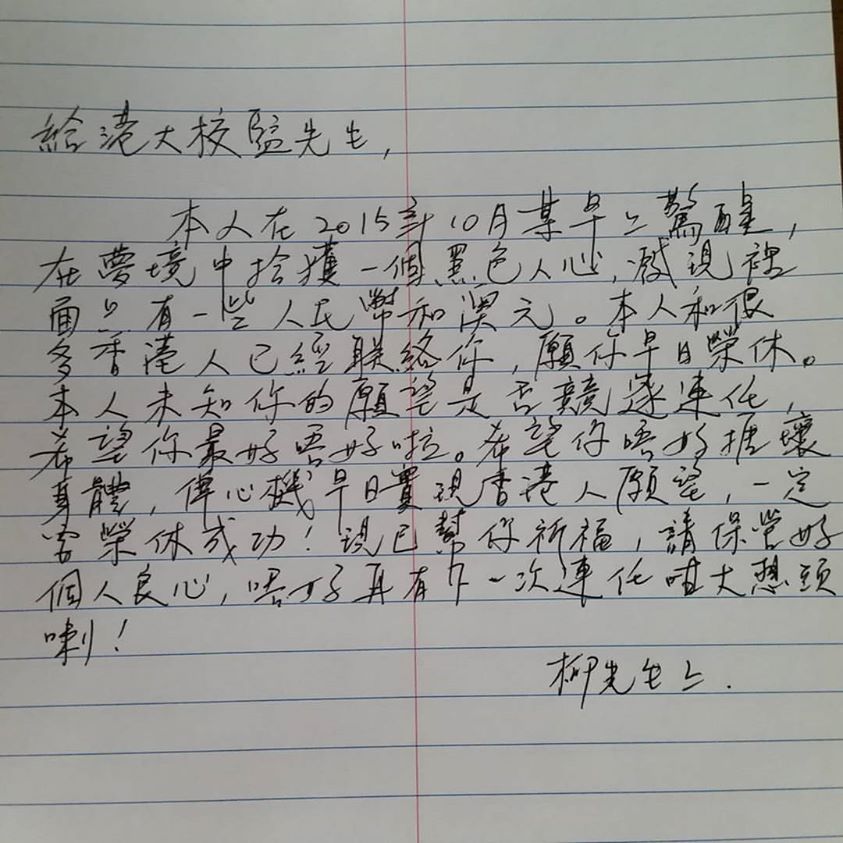 給港大校監先生,
本人在2015年10月某早上驚醒,
在夢境中拾獲一個黑色人心,發現裡
面只有一些人民幣和澳元。本人和很
多香港人已經联絡你,願你早日榮休。
本人未知你的願望是否競逐連任,
希望你最好唔好啦。希望你唔好捱壞
身體,俾心機早日實現香港人願望,一定
會榮休成功!現已幫你祈福,請保管好
個人良心,唔好再有下一次連任咁大想頭
喇!
柳先生上.